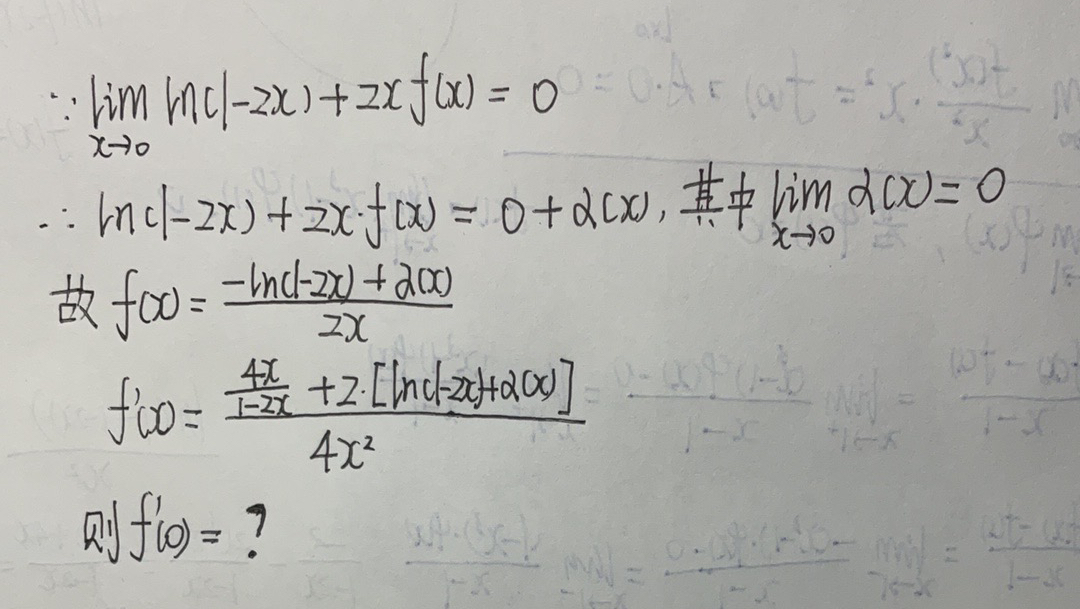 ∵ lim ln(1-2x) + 2x f(x) = 0
x→0
∴ ln(1-2x) + 2x·f(x) = 0 + α(x), 其中 lim α(x) = 0
x→0
故 f(x) = (-ln(1-2x) + α(x)) / 2x
f'(x) = (4x/(1-2x) + 2·[ln(1-2x)+α(x)]) / 4x²
则 f'(0) = ?